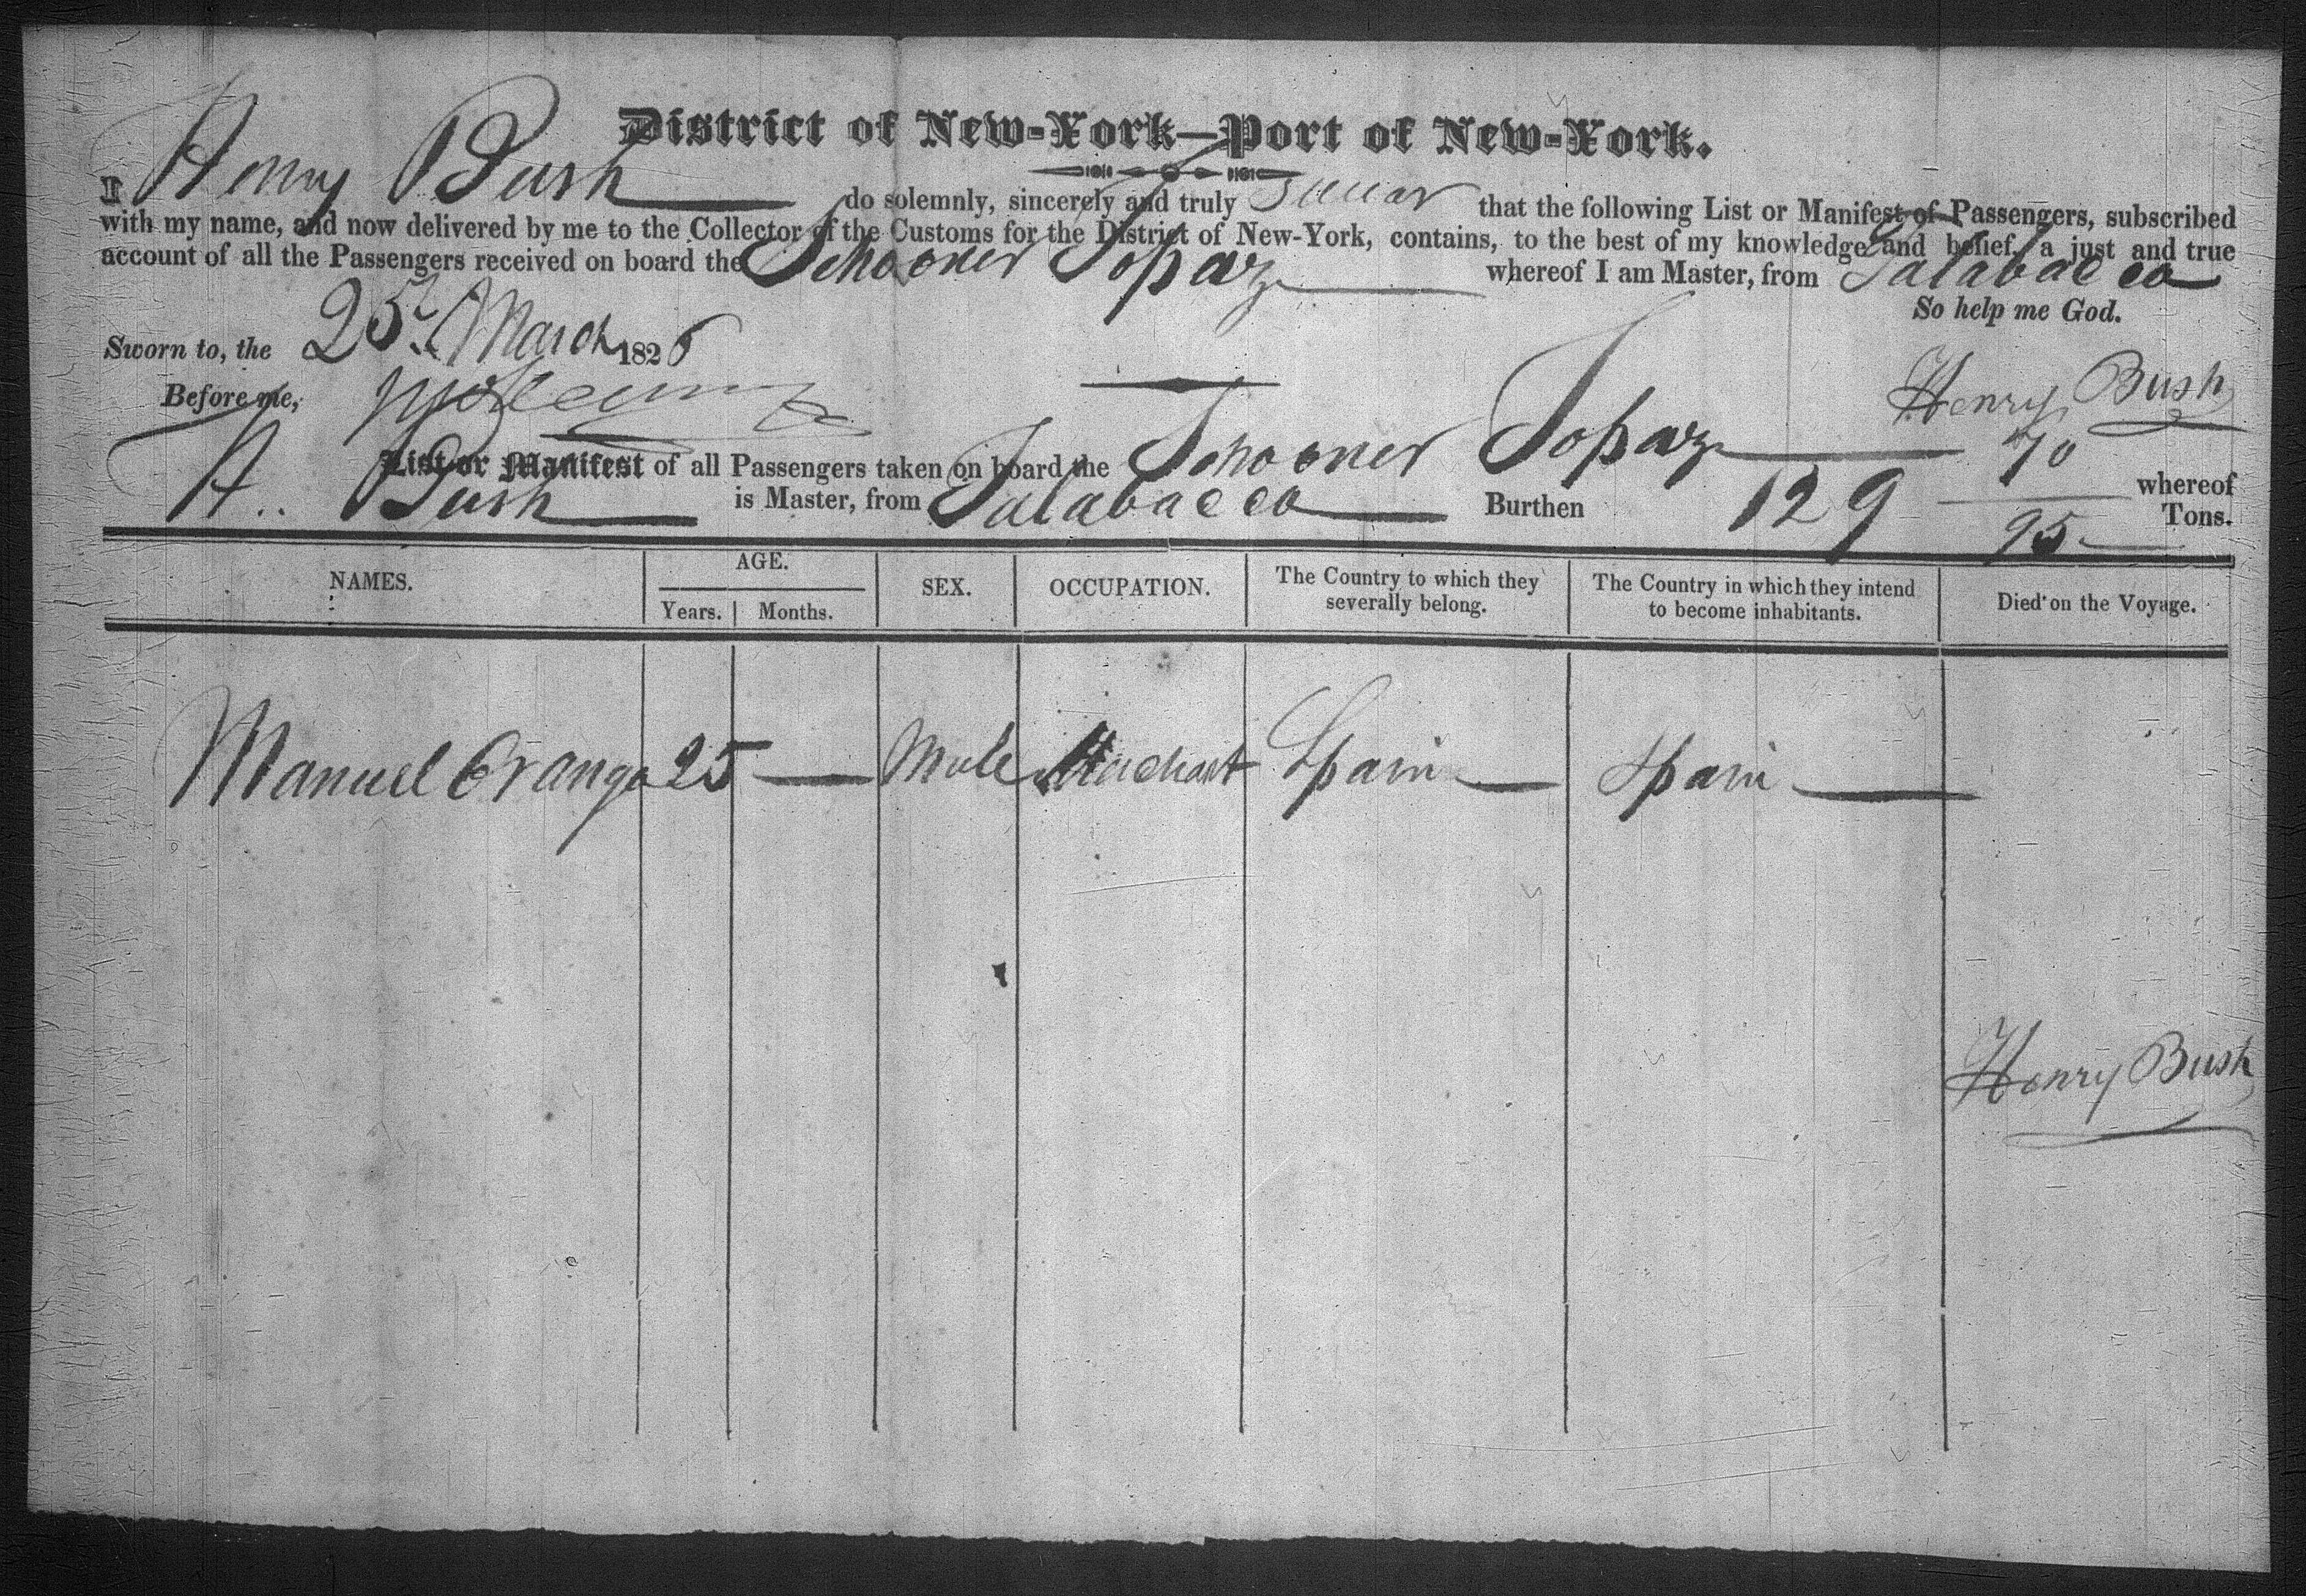 District of New-York—Port of New-York.
I Henry Bush do solemnly, sincerely and truly swear that the following List or Manifest of Passengers, subscribed
with my name, and now delivered by me to the Collector of the Customs for the District of New-York, contains, to the best of my knowledge and belief, a just and true
account of all the Passengers received on board the Schooner Topaz whereof I am Master, from Talabacca
So help me God.
Sworn to, the 25 March 1826
Before me,
Henry Bush
List or Manifest of all Passengers taken on board the Schooner Topaz whereof
H. Bush is Master, from Talabacca Burthen 129 70/95 Tons.
NAMES. AGE. SEX. OCCUPATION. The Country to which they severally belong. The Country in which they intend to become inhabitants. Died on the Voyage.
Years. Months.
Manuel Orango 25 — Male Merchant Spain Spain
Henry Bush